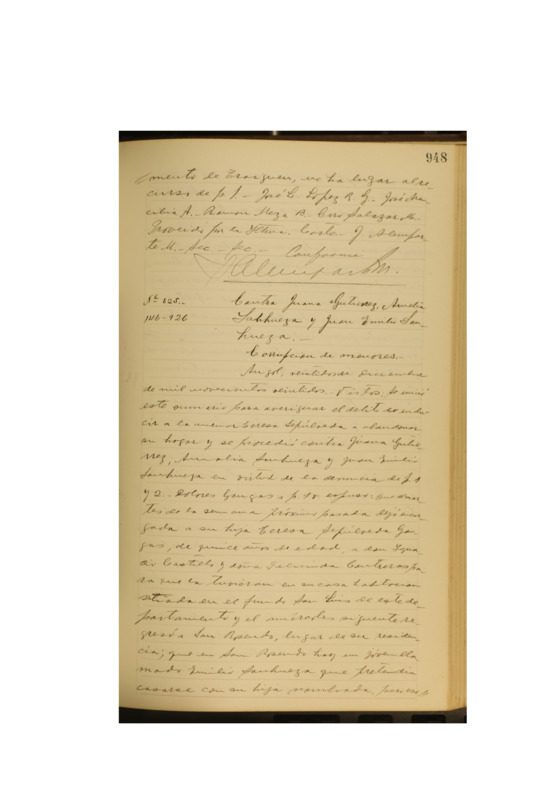 948
tamento de Traiguen, no ha lugar al re-
curso de p 1 - José L. Lopez R. G. José Ma
celia A. - Ramon Meza B. Ciro Salazar M.
Proveido por la Iltma. Corte. J Alempar-
te M. - Sec - Sec. - Conforme
J Alemparte M.
Nº 825.-
Contra Juana Gutierrez, Amelia
Sanhueza y Juan Emilio San-
hueza. -
Corrupcion de menores. -
Angol, veintidos de Diciembre
de mil novecientos veintidos. - Vistos: Se inició
este sumario para averiguar el delito de indu-
cir a la menor Teresa Sepúlveda a abandonar
su hogar y se procedió contra Juana Gutie-
rrez, Amalia Sanhueza y Juan Emilio
Sanhueza en virtud de la denuncia de p 1
y 2. - Dolores Gangas a p 10 expuso: que el mar-
tes de la semana próxima pasada dejó encar-
gada a su hija Teresa Sepúlveda Gan-
gas, de quince años de edad, a don Igna-
cio Castillo y doña Contreras pa-
ra que la tuvieran en su casa habitacion
situada en el fundo San Luis de este de-
partamento y el miércoles siguiente re-
gresó a San Rosendo, lugar de su residen-
cia; que en San Rosendo hay un jóven lla-
mado Emilio Sanhueza que pretendia
casarse con su hija nombrada,